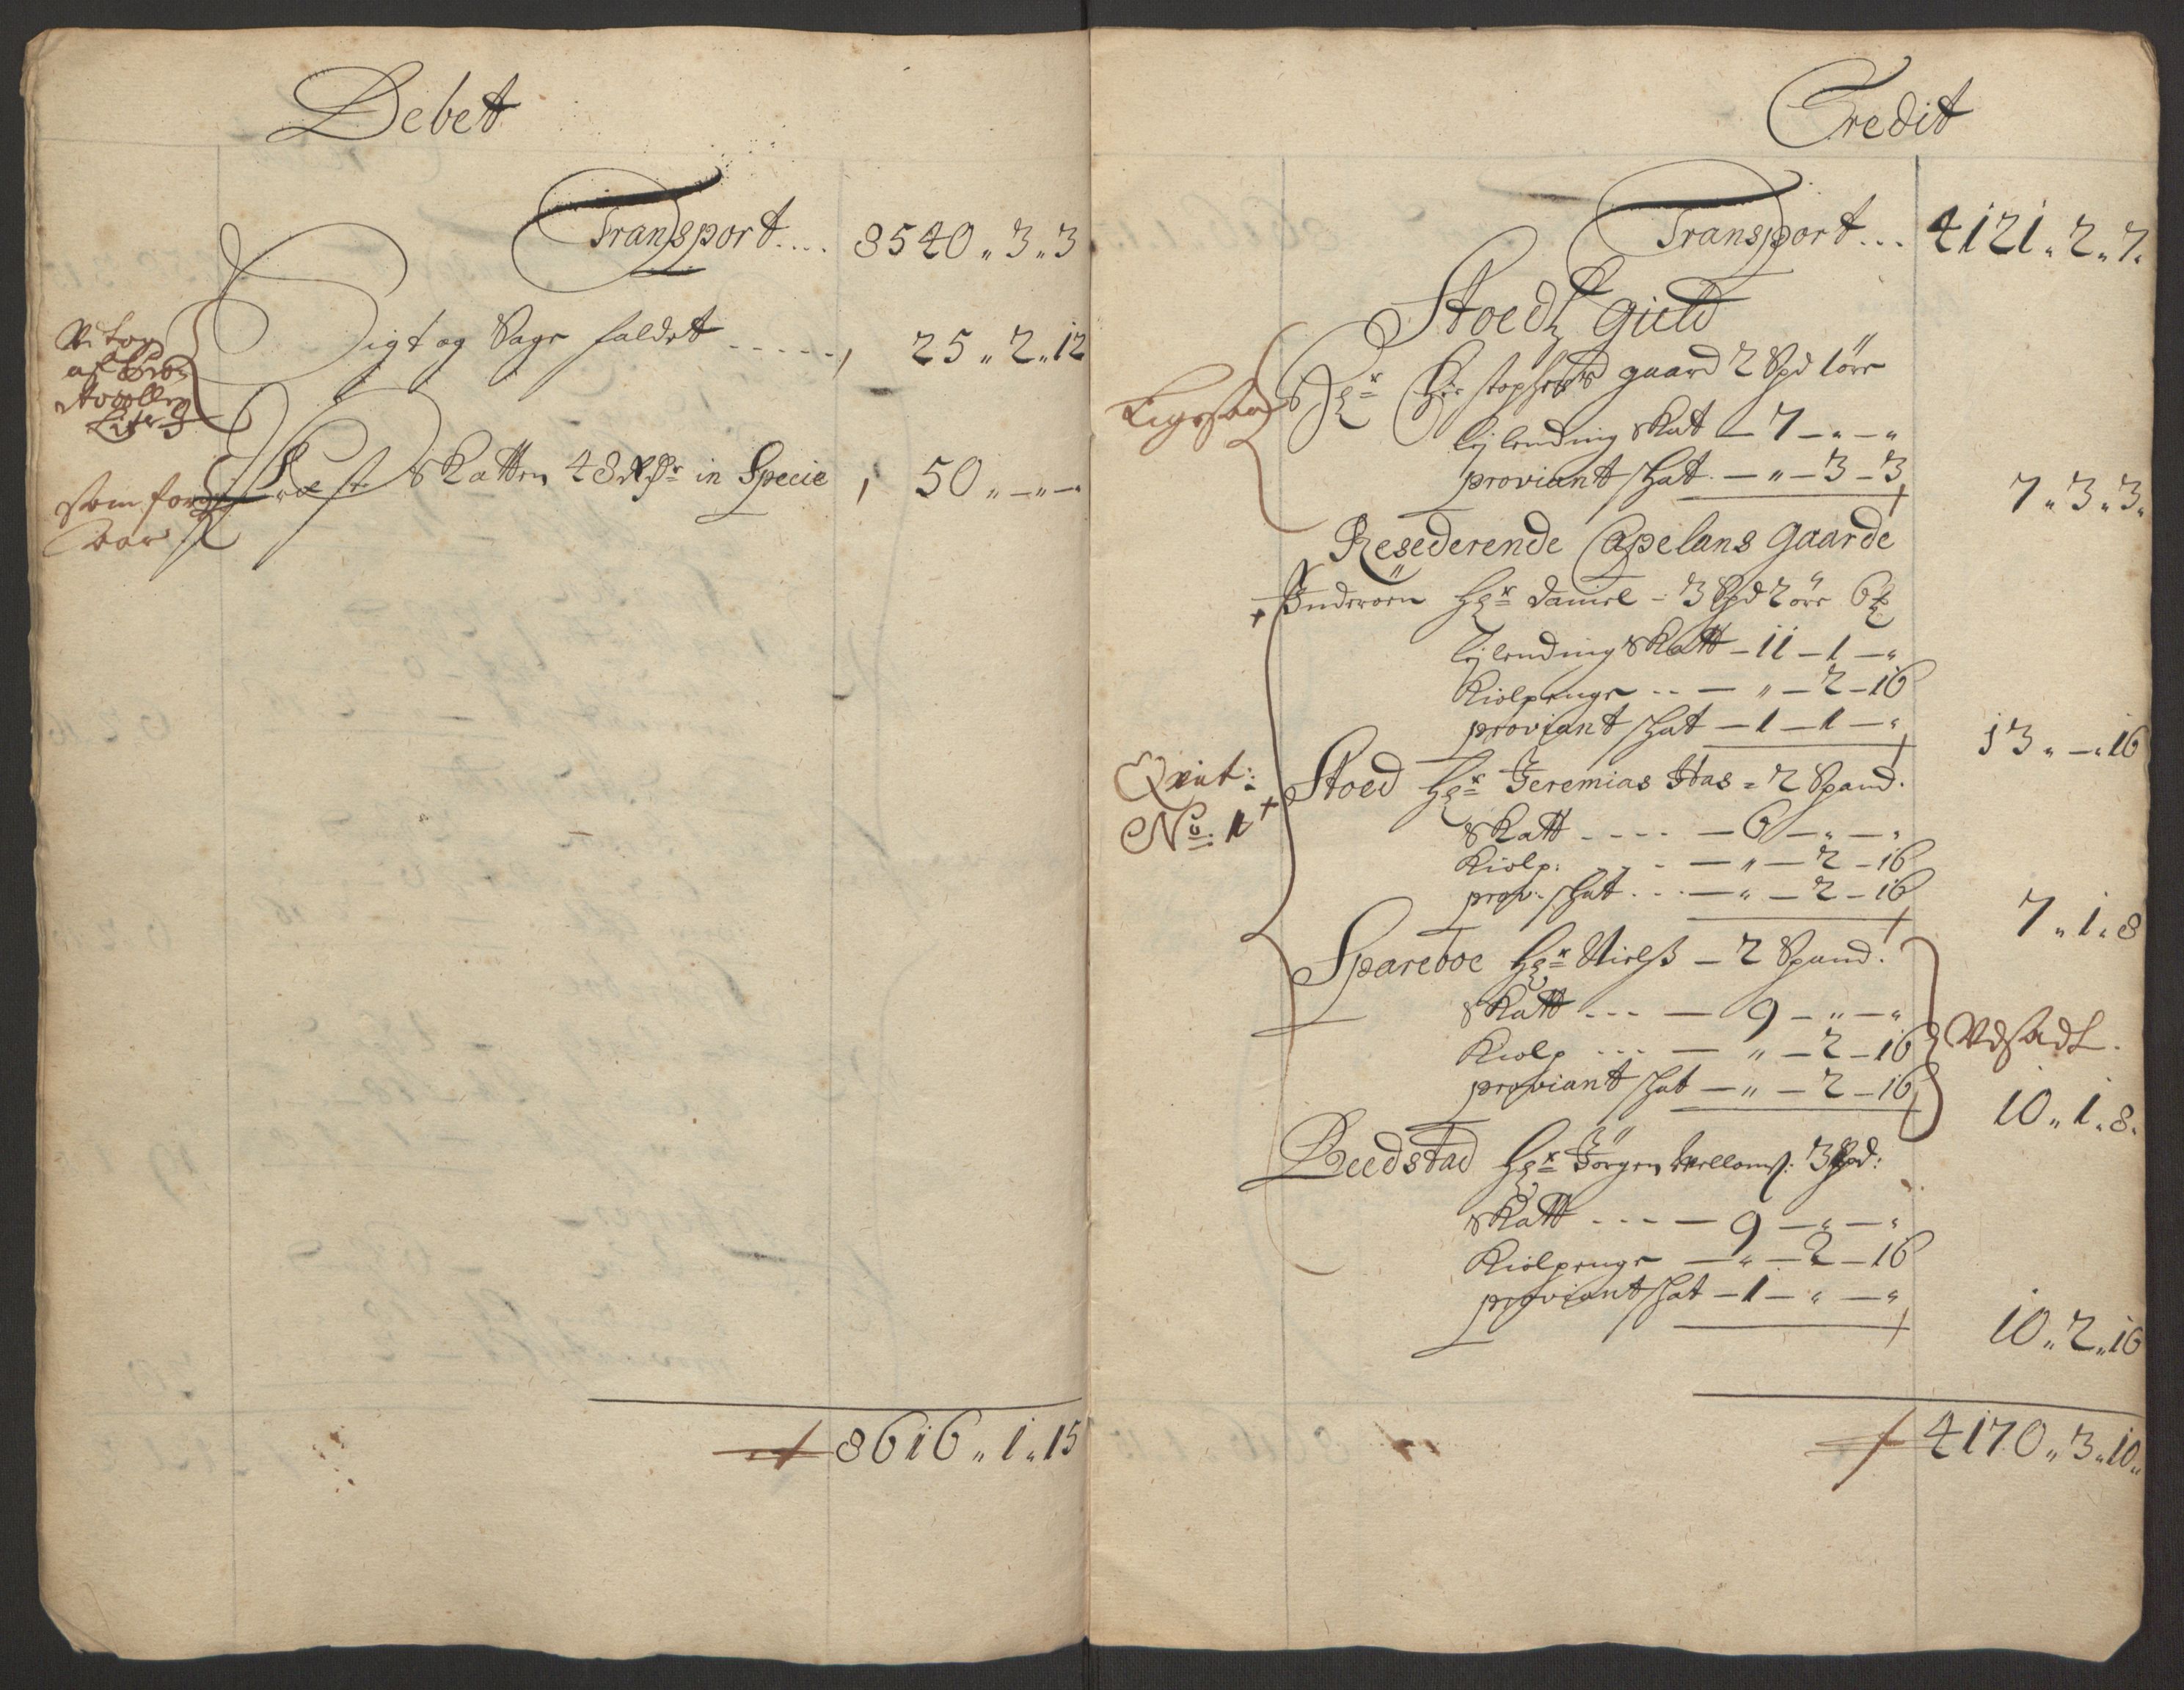 Debet
Transport.... 8540 „ 3 „ 3
Sigt og Sage faldet ----- 25 „ 2 „ 12
Liter
Skatten 48 in Specie 50 „ — „ —
som for
Credit
Transport... 4121 „ 2 „ 7
Stoedz Gield
Hr Christophers gaard 2 Spd 1 öre
lejlending Skat — 7 — „ — „
proviant skat — „ — 3 — 3 7 „ 3 „ 3
Resederende Capelans gaarde
Inderøen Hr Daniel - 3 Spd 2 öre 6
lejlending Skatt — 11 — 1 — „
Kiölpenge -- — „ — 2 — 16
proviant skat — 1 — 1 — „ 13 „ — „ 16
Qvit:
No. 1
Stoed Hr Jeremias Has = 2 Spand.
Skatt ---- — 6 — „ — „
Kiölp: - - - — „ — 2 — 16
prov: skat ... — „ — 2 — 16 7 „ 1 „ 8
Spareboe Hr Nielss — 2 Spand.
Skatt --- — 9 — „ — „
Kiolp --- — „ — 2 — 16 Udsadt.
proviant skat — „ — 2 — 16 10 „ 1 „ 8
Beedstad Hr Jörgen 3 Spd:
Skatt ---- — 9 — „ — „
Kiölpenge — „ — 2 — 16
proviant skat — 1 — „ — „ 10 „ 2 „ 16
8616 „ 1 „ 15
4170 „ 3 „ 10